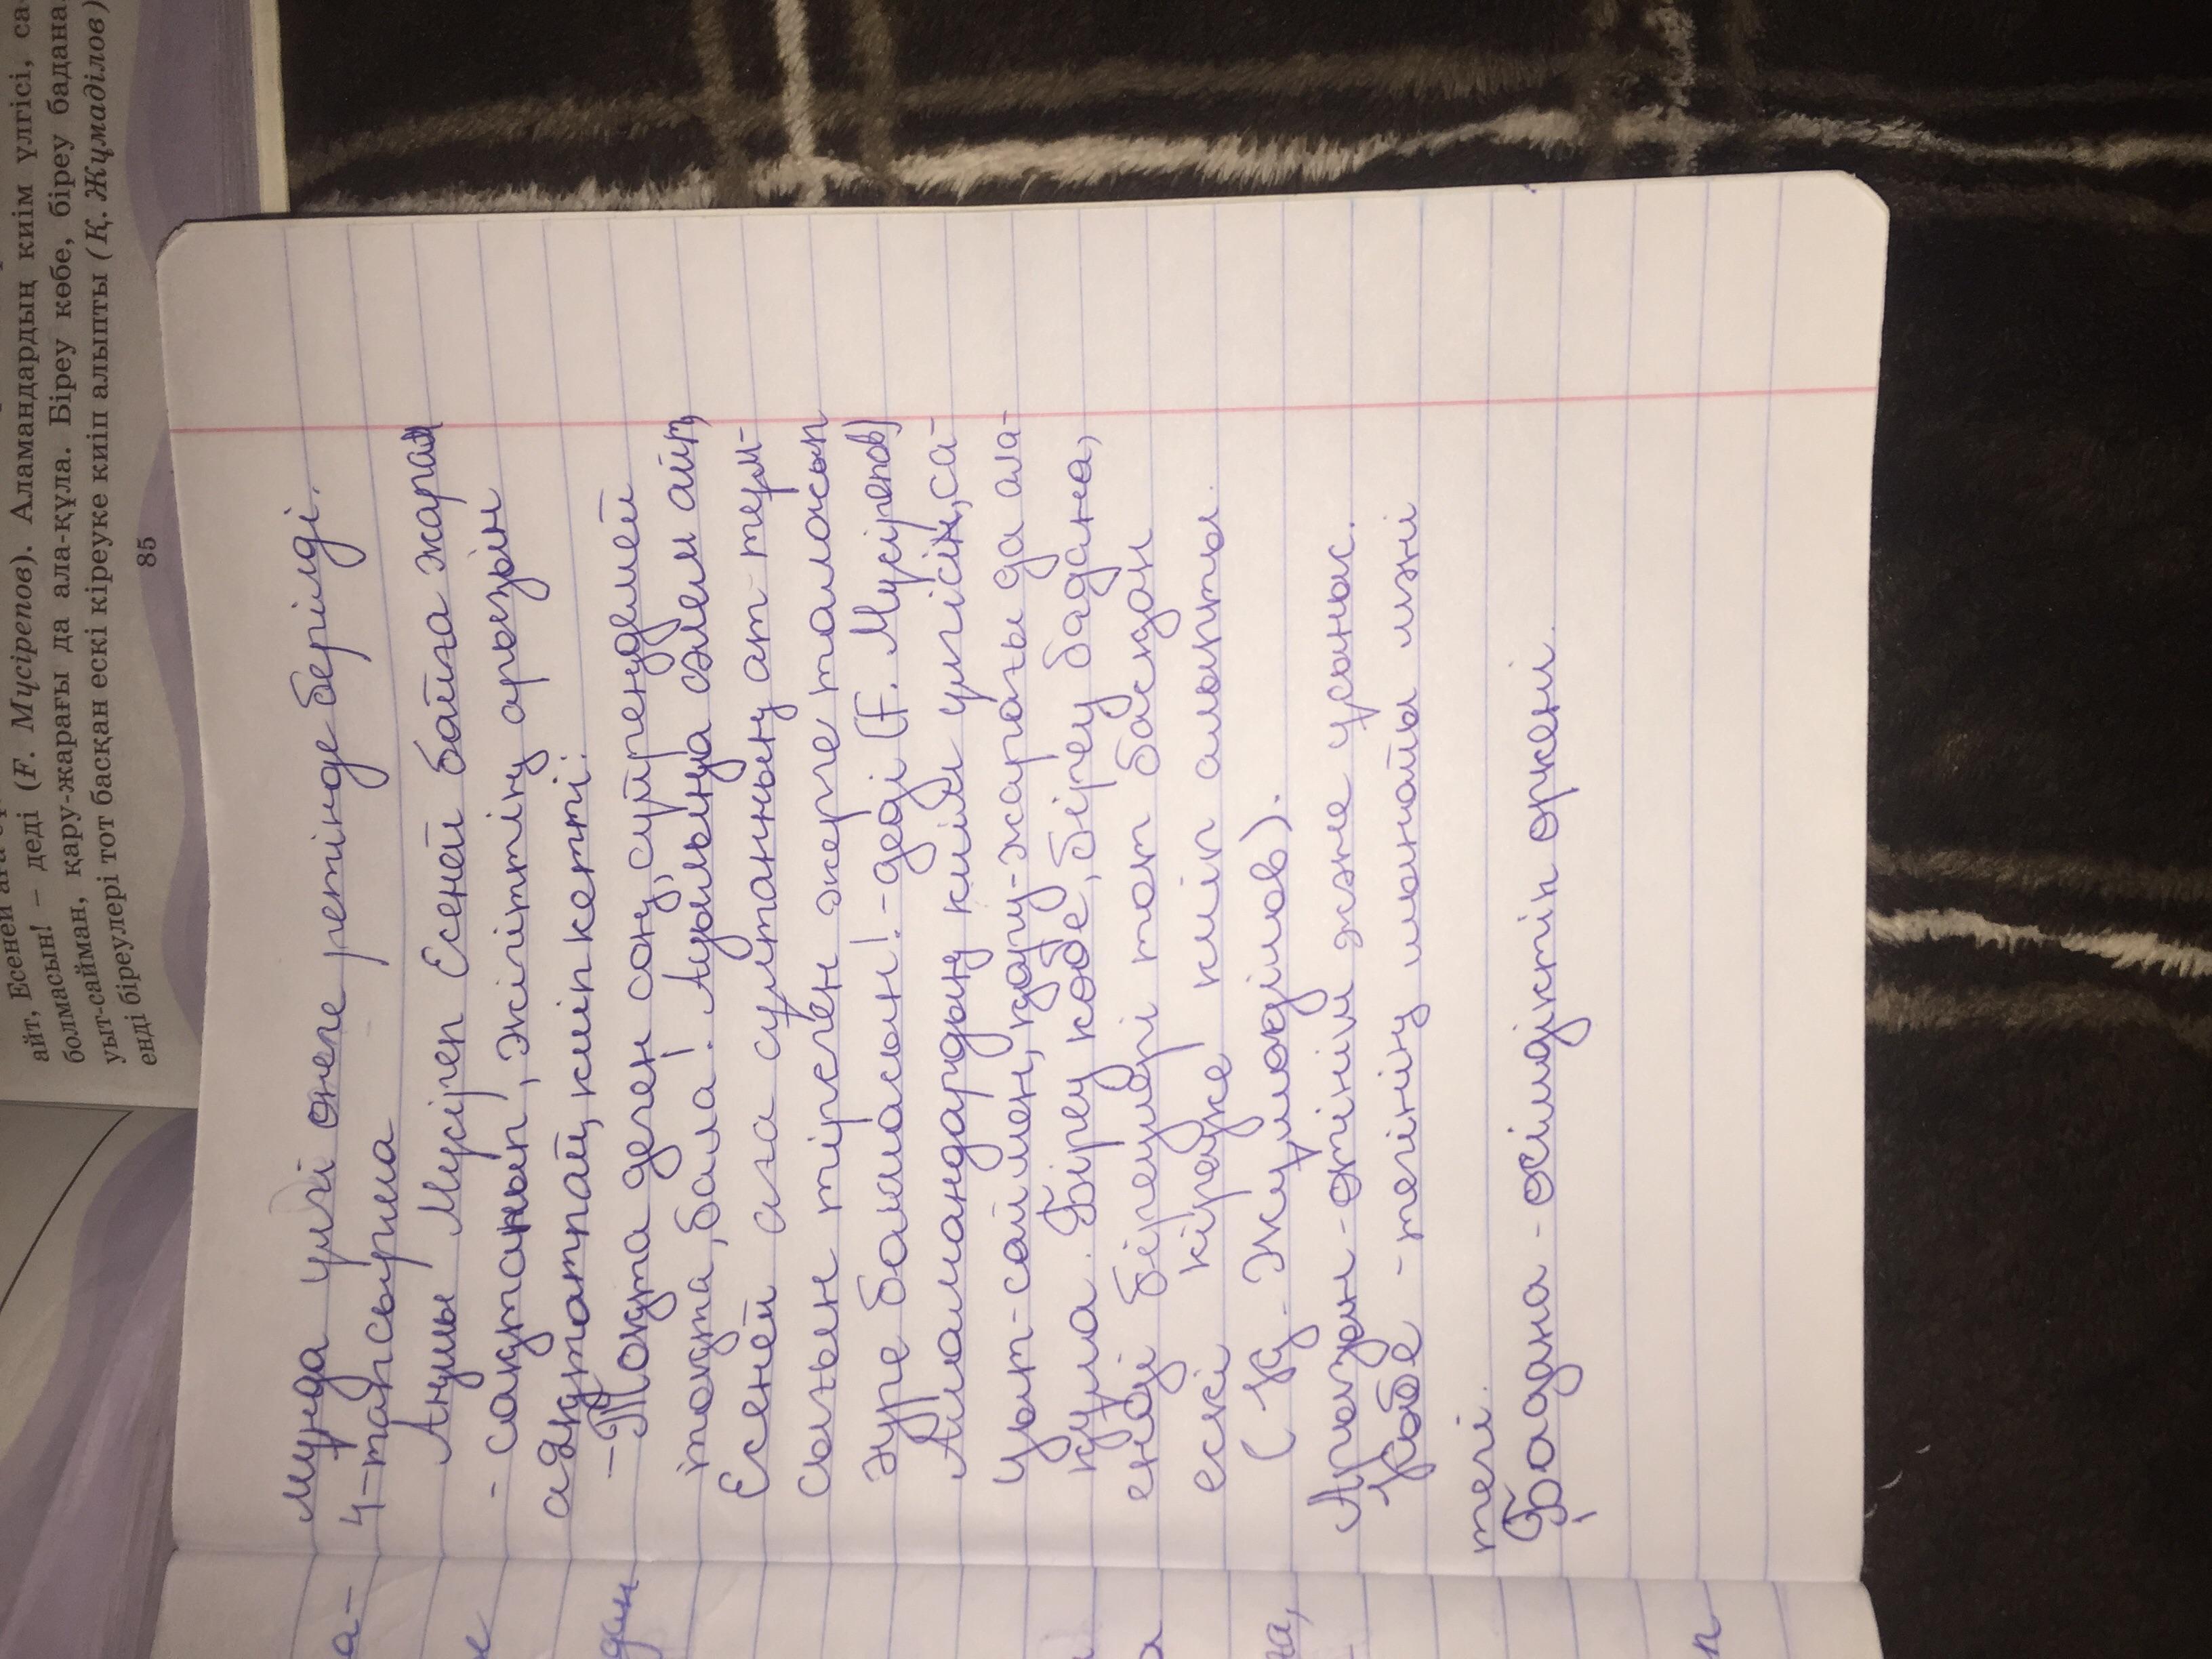 айт, Есеней аға
болмасын! – деді (Ғ. Мүсірепов). Аламандардың киім үлгісі, са-
уыт-сайман, қару-жарағы да ала-құла. Біреу көбе, біреу бадана,
енді біреулері тот басқан ескі кіреуке киіп алыпты (Қ. Жұмаділов)
85
Мұнда үлгі өнеге ретінде берілді.
4-тапсырма
Аңшы Мүсіреп Есеней байға жарам
- сақтанып, жігіттің арызын
аяқтатпай, киіп кетті:
-Тоқта деген соң, сүйрендемей
тоқта, бала! Ауылыңа сәлем айт,
Есеней аға сұлтанның ат-тұм-
сығын тірсген жерге таласып
әуре болмасын!-деді (Ғ. Мүсірепов)
Аламандардың киім үлгісін, са-
уыт-саймен, қару-жарағы да ала-
құла. Біреу көбе, біреу бадана,
енді біреулері тот басқан
ескі кіреуке киіп алыпты.
(Қ. Жұмаділов).
Арызын-өтініш және ұсыныс.
Көбе -тегінің маңайы мәні
тегі.
Бадана-өсімдіктің өркені.